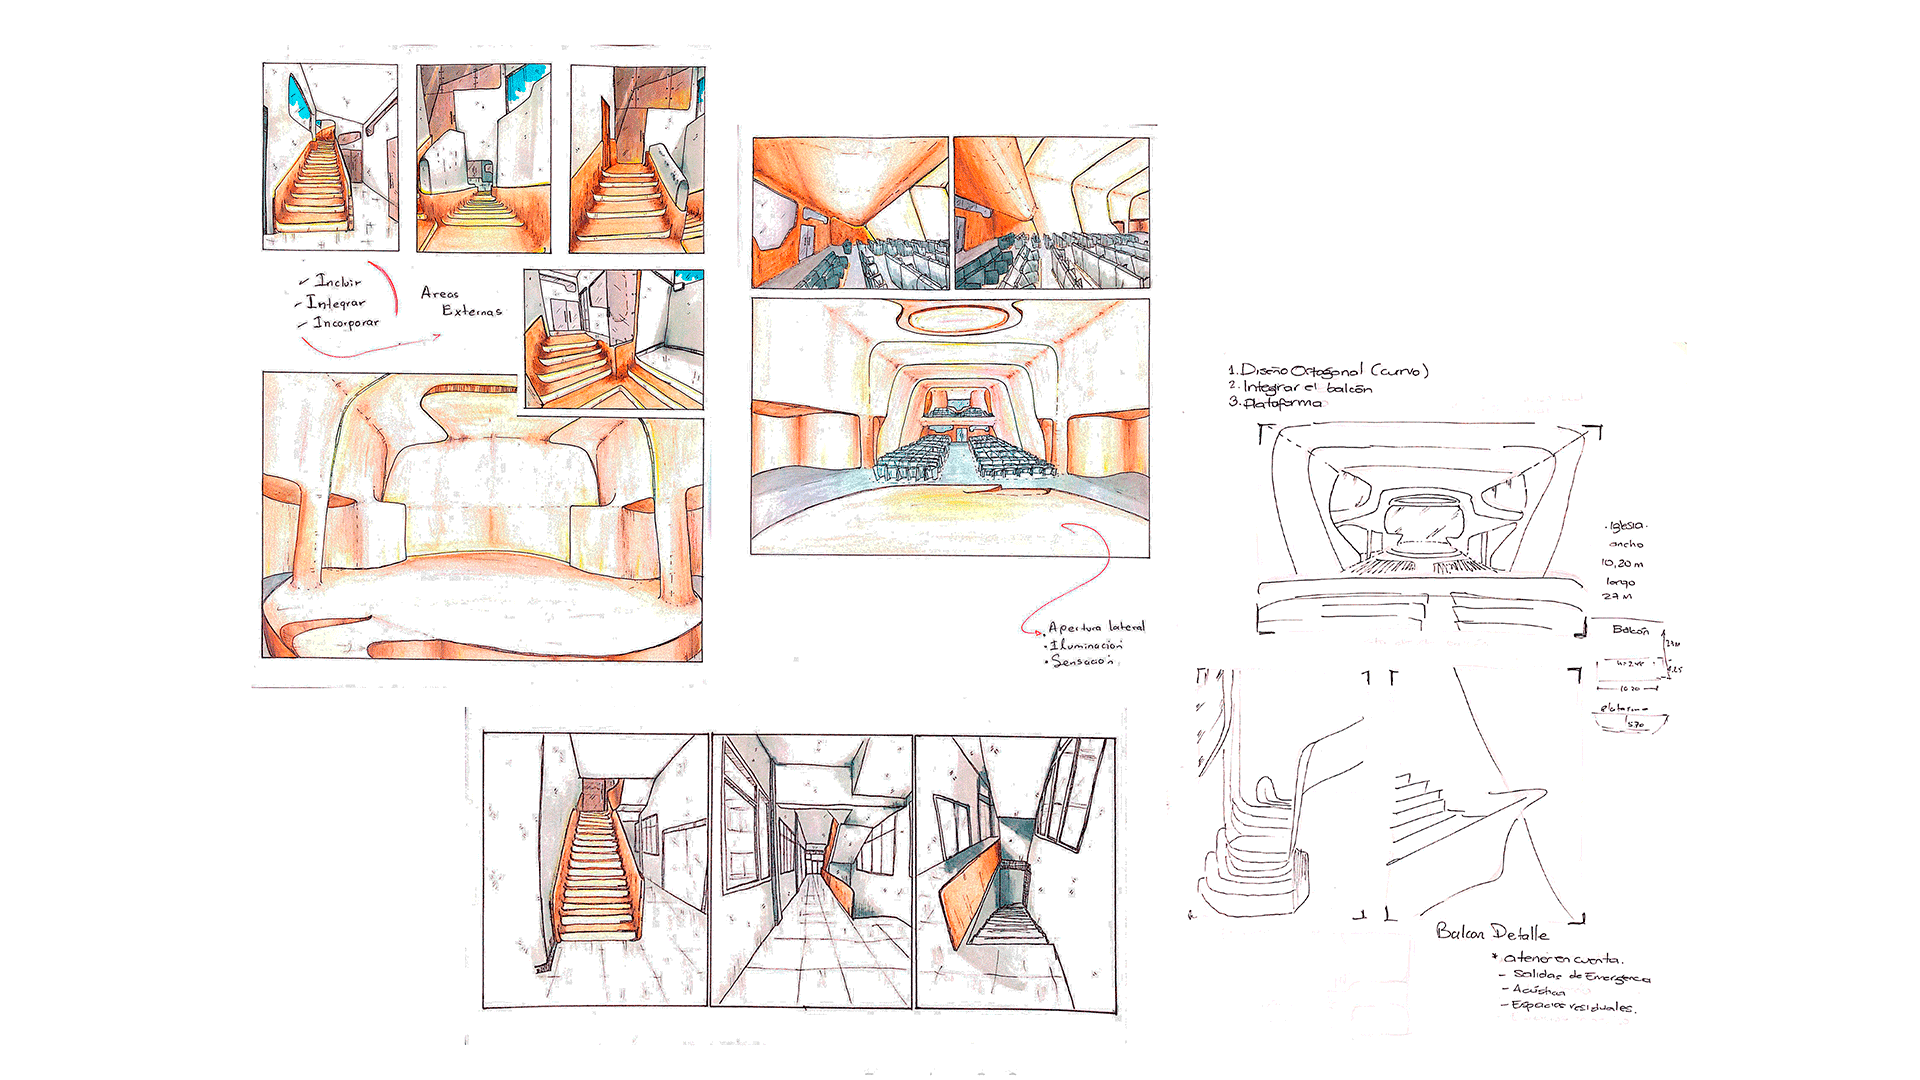 - Incluir
- Integrar
- Incorporar
Areas
Externas
• Apertura lateral
• Iluminación
• Sensación
1. Diseño Octagonal (curvo)
2. Integrar el balcón
3. Plataforma
• Iglesia •
ancho
10,20 m
largo
27 M
Balcón
10.20
Plataforma
5.70
Balcon Detalle
* a tener en cuenta.
- Salidas de Emergencia
- Acústica
- Espacios residuales.